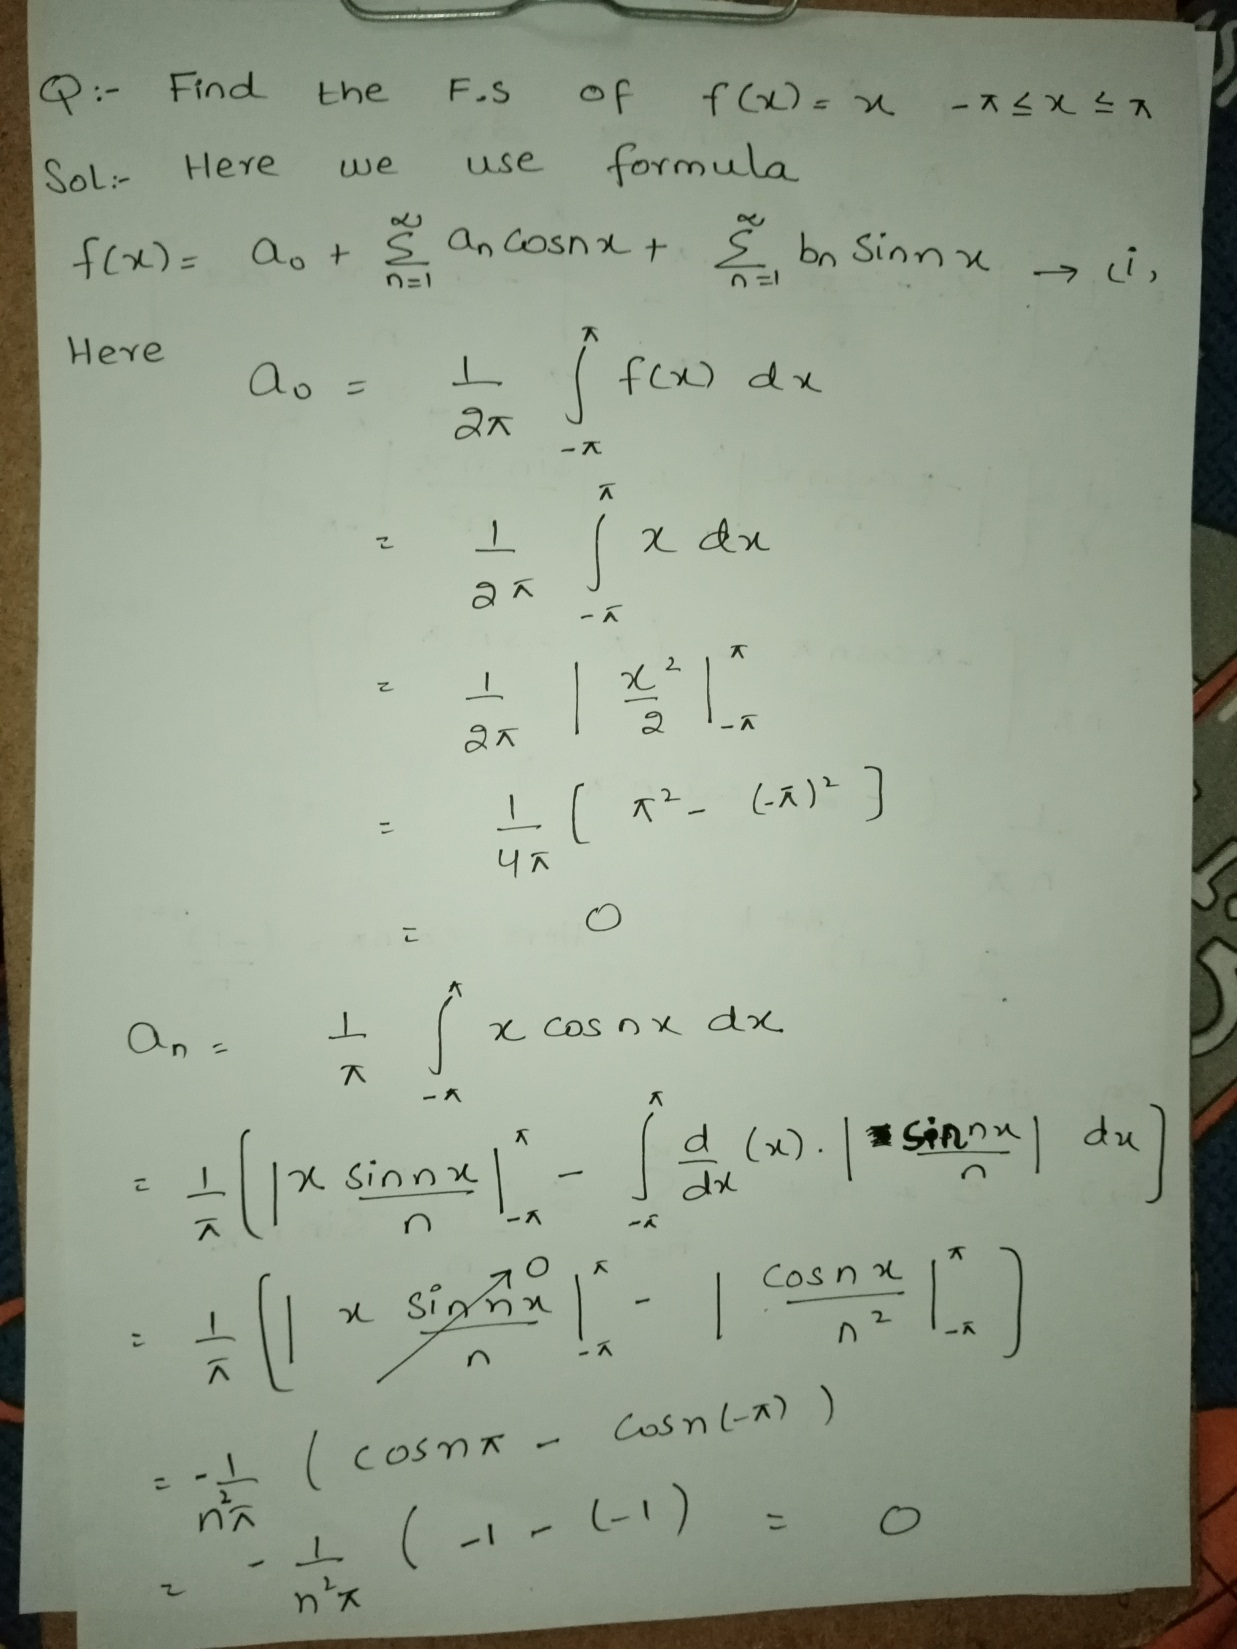 Q:- Find the F.S of f(x) = x -π ≤ x ≤ π
Sol:- Here we use formula
f(x) = a₀ + ∑_{n=1}^{∞} aₙ Cosnx + ∑_{n=1}^{∞} bₙ Sinnx → (i,
Here
a₀ = 1/2π ∫_{-π}^{π} f(x) dx
= 1/2π ∫_{-π}^{π} x dx
= 1/2π | x²/2 |_{-π}^{π}
= 1/4π [ π² - (-π)² ]
= 0
aₙ = 1/π ∫_{-π}^{π} x cosnx dx
= 1/π [ |x sinnx/n|_{-π}^{π} - ∫_{-π}^{π} d/dx (x). | sinnx/n | dx ]
= 1/π [ | x sinnx/n |_{-π}^{π} ↗0 - | cosnx/n² |_{-π}^{π} ]
= -1/n²π ( cosnπ - Cosn(-π) )
= -1/n²π ( -1 - (-1) = 0